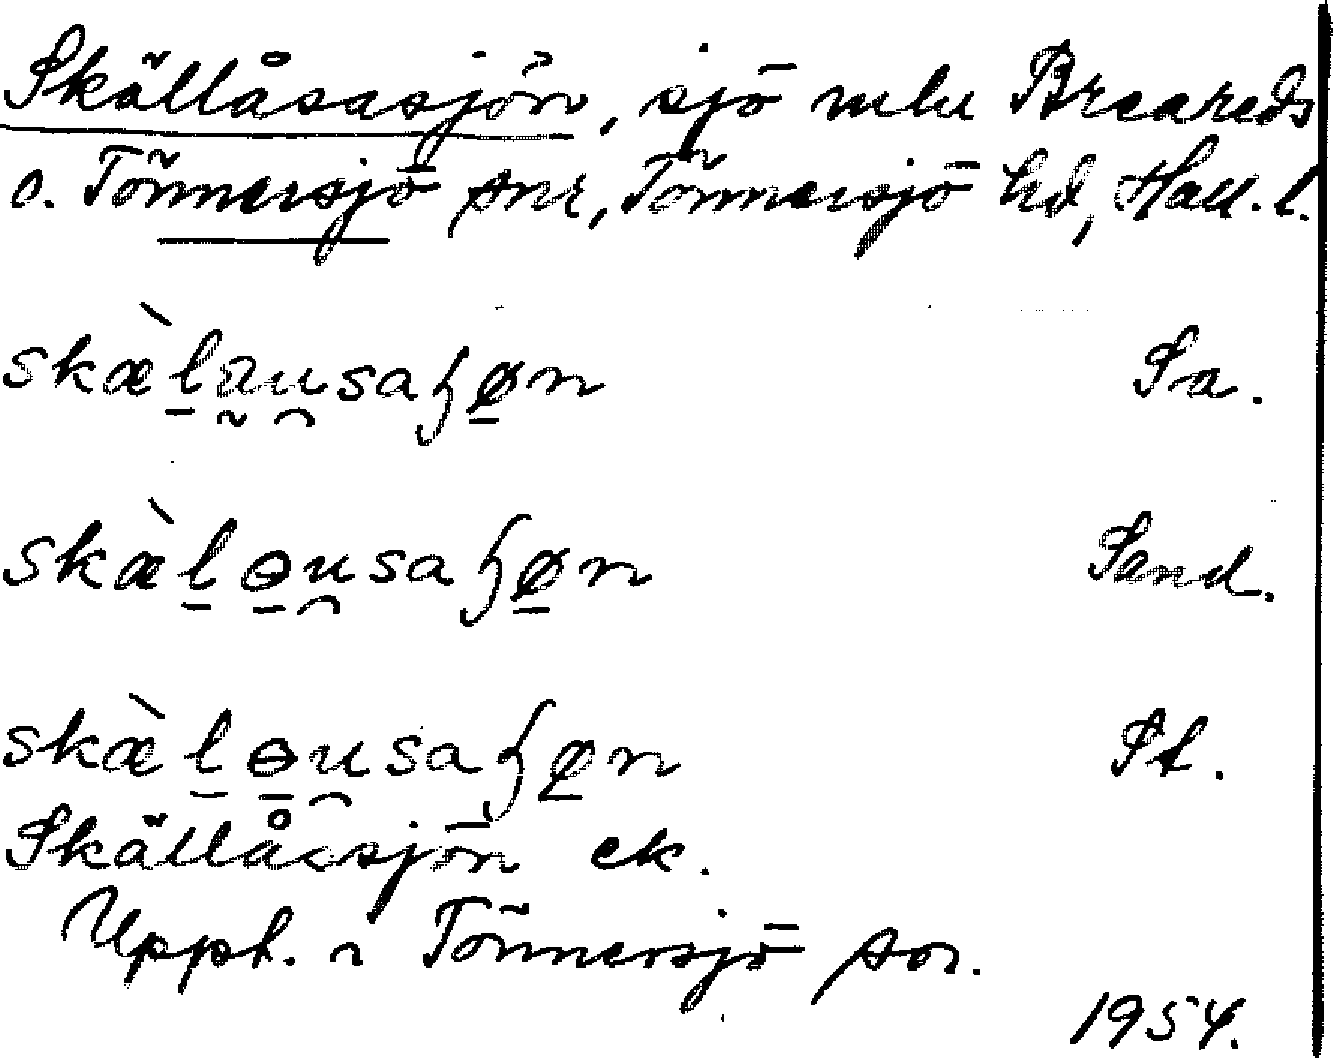 Skällåsasjön, sjö mlu Breareds
o. Tönnersjö snr, Tönnersjö hd, Hall. l.
skæ̀l̠a̰u̯saɧø̠n Sa.
skæ̀l̠ɵ̠u̯saɧø̠n Sand.
skæ̀l̠ɵ̠u̯saɧø̠n St.
Skällåssjön ek.
Uppt. i Tönnersjö sn.
1954.